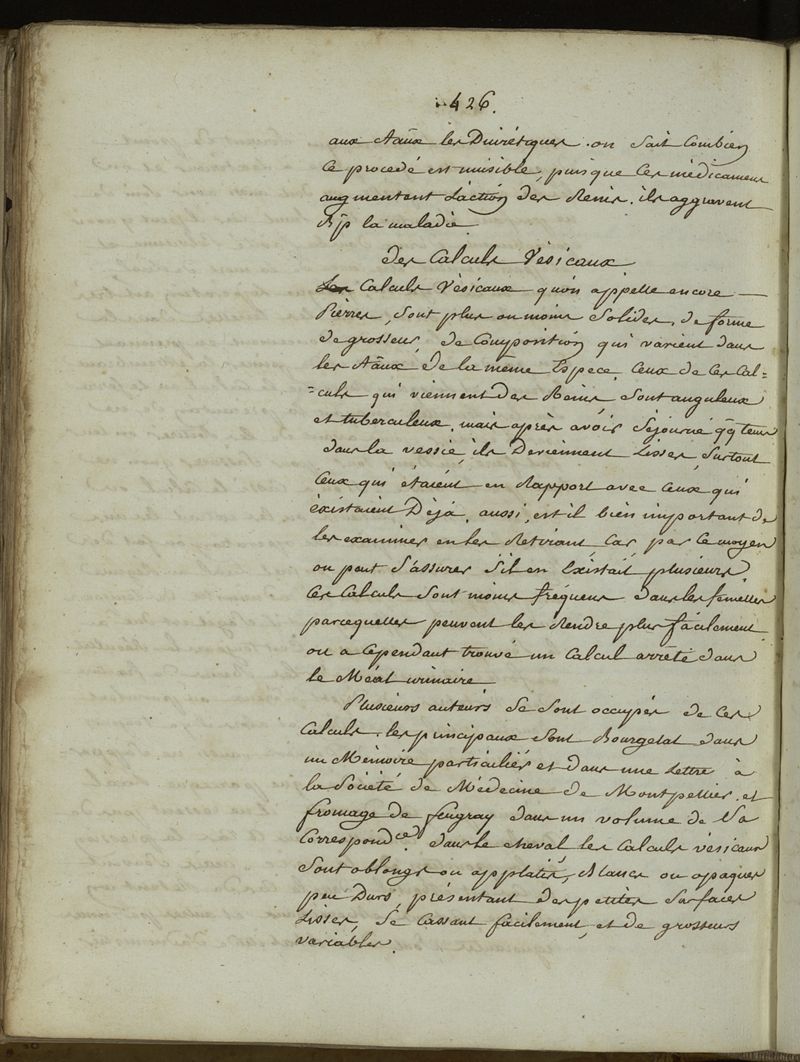 426.
aux Aāūx les Diurétiques. on Sait Combien
Ce procedé est nuisible, puisque Ces médicamens
augmentent L'action des Reins. ils aggravent
la maladie.
des Calculs Vésicaux
Les Calculs Vésicaux qu'on appelle encore —
Pierres, Sont plus ou moins Solides, de forme
de grosseur, de Composition qui varient dans
les Aāūx de la même Espece. Ceux de Ces Cal=
=culs qui viennent des Reins, Sont anguleux
et tuberculeux, mais après avoir Séjourné qq tems
dans la vessie, ils Deviennent Lisses, Surtout
Ceux qui étaient en Rapport avec Ceux qui
éxistaient Déjà, aussi, est il bien important de
les examiner en les Retirant, Car par Ce moyen
on peut S'assurer S'il en Existait plusieurs.
Ces Calculs Sont moins fréquens dans les femelles
parcequelles peuvent les Rendre plus facilement.
on a Cependant trouvé un Calcul arrété dans
le Méat urinaire.
Plusieurs auteurs Se Sont occupés de Ces
Calculs, les principaux Sont Bourgelat dans
un Mémoire particulier et dans une Lettre à
la Société de Médecine de Montpellier, et
fromage de feugray dans un volume de Sa
Correspondce. dans le cheval les Calculs vésicaux
Sont oblongs ou applatis, Blancs ou opaques
peu Durs, présentant des petites Surfaces
Lisses, Se Cassant facilement, et de grosseurs
variables.